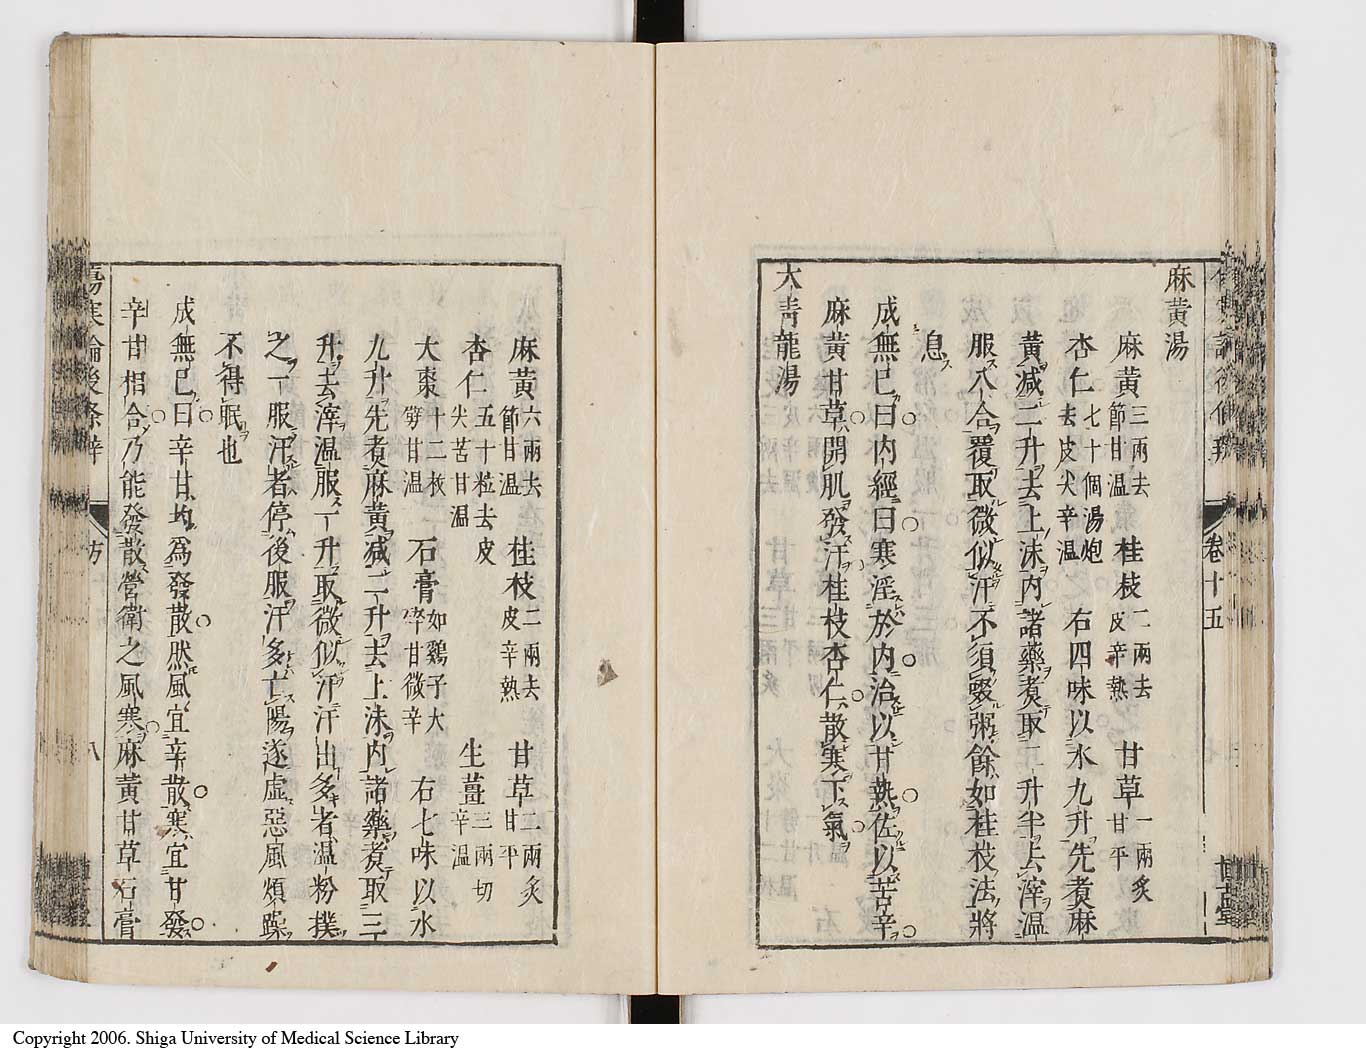 麻黃湯
麻黃三兩去節甘温 桂枝二兩去皮辛熱 甘草一兩炙甘平
杏仁七十個湯炮去皮尖辛温 右四味以水九升先煮麻
黃減二升去上沫内諸藥煮取二升半去滓温
服八合覆取微似汗不須啜粥餘如桂枝法將
息
成無已曰内經曰寒淫於内治以甘熱佐以苦辛
麻黃甘草開肌發汗桂枝杏仁散寒下氣
大青龍湯
卷十五
麻黃六兩去節甘温 桂枝二兩去皮辛熱 甘草二兩炙甘平
杏仁五十粒去皮尖苦甘温 生薑三兩切辛温
大棗十二枚劈甘温 石膏如鷄子大碎甘微辛 右七味以水
九升先煮麻黃減二升去上沫内諸藥煮取三
升去滓温服一升取微似汗汗出多者温粉撲
之一服汗者停後服汗多亡陽遂虛惡風煩躁
不得眠也
成無已曰辛甘均爲發散然風宜辛散寒宜甘發
辛甘相合乃能發散營衛之風寒麻黃甘草石膏
傷寒論後條辨 方 八
Copyright 2006. Shiga University of Medical Science Library